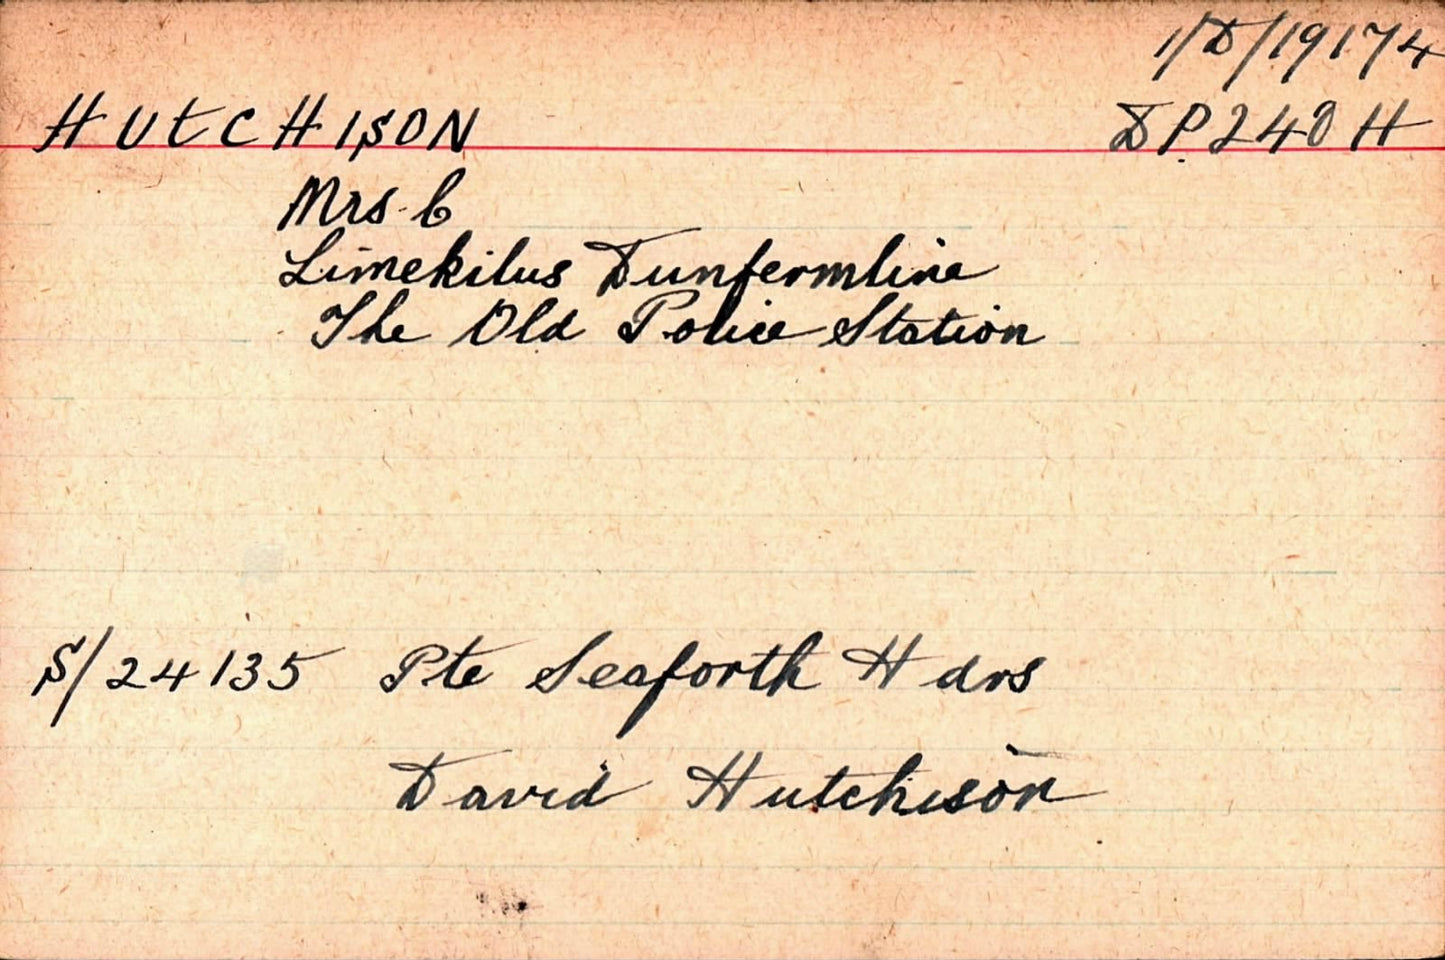 1/D/19174
HUTCHISON DP240H
Mrs C
Limekilns Dunfermline
The Old Police Station
S/24135 Pte Seaforth Hdrs
David Hutchison